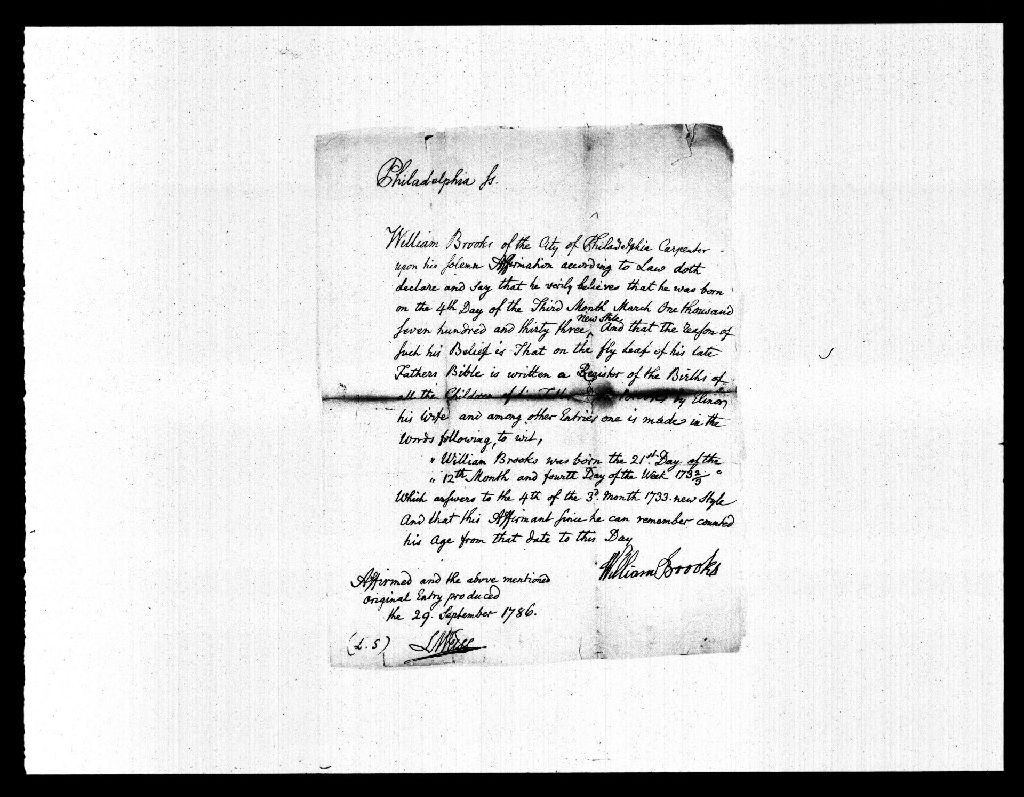 Philadelphia ss.
William Brooks of the City of Philadelphia Carpenter
upon his solemn Affirmation according to Law doth
declare and say that he verily believes that he was born
on the 4th Day of the Third Month March One thousand
new Stile
Seven hundred and thirty three ^ And that the reason of
such his Belief is That on the fly Leaf of his late
Fathers Bible is written a Register of the Births of
all the Children of his by Elinor
his Wife and among other Entries one is made in the
Words following, to wit,
" William Brooks was born the 21st Day of the
" 12th Month and fourth Day of the Week 173 2/3 "
Which answers to the 4th of the 3d. Month 1733 new Style
And that this Affirmant since he can remember counted
his Age from that date to this Day
William Brooks
Affirmed and the above mentioned
Original Entry produced
the 29. September 1786.
(L.S)